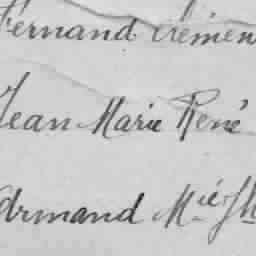 Fernand Clémen
Jean Marie René
Armand Mie Jh